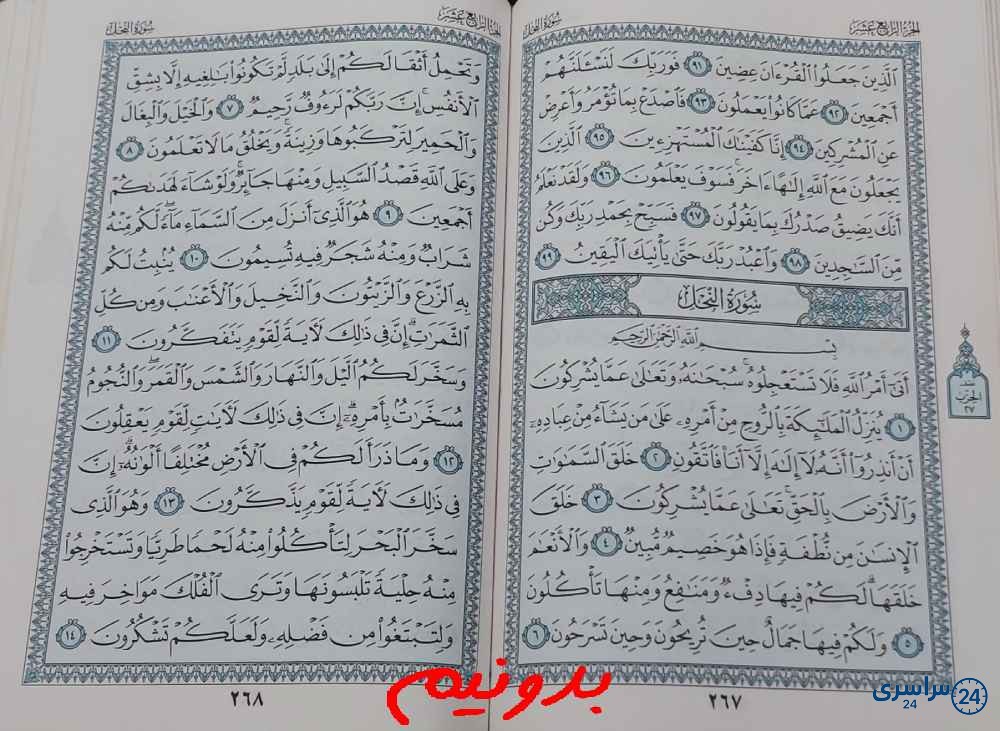 الجزء الرابع عشر
سورة النحل
الَّذِينَ جَعَلُوا الْقُرْءَانَ عِضِينَ ٩١ فَوَرَبِّكَ لَنَسْـَٔلَنَّهُمْ
أَجْمَعِينَ ٩٢ عَمَّا كَانُوا يَعْمَلُونَ ٩٣ فَاصْدَعْ بِمَا تُؤْمَرُ وَأَعْرِضْ
عَنِ الْمُشْرِكِينَ ٩٤ إِنَّا كَفَيْنَاكَ الْمُسْتَهْزِءِينَ ٩٥ الَّذِينَ
يَجْعَلُونَ مَعَ اللَّهِ إِلَـٰهًا ءَاخَرَ فَسَوْفَ يَعْلَمُونَ ٩٦ وَلَقَدْ نَعْلَمُ
أَنَّكَ يَضِيقُ صَدْرُكَ بِمَا يَقُولُونَ ٩٧ فَسَبِّحْ بِحَمْدِ رَبِّكَ وَكُن
مِّنَ السَّـٰجِدِينَ ٩٨ وَاعْبُدْ رَبَّكَ حَتَّىٰ يَأْتِيَكَ الْيَقِينُ ٩٩
سُورَةُ النَّحْلِ
بِسْمِ اللَّهِ الرَّحْمَـٰنِ الرَّحِيمِ
أَتَىٰ أَمْرُ اللَّهِ فَلَا تَسْتَعْجِلُوهُ سُبْحَـٰنَهُ وَتَعَـٰلَىٰ عَمَّا يُشْرِكُونَ
١ يُنَزِّلُ الْمَلَـٰٓئِكَةَ بِالرُّوحِ مِنْ أَمْرِهِ عَلَىٰ مَن يَشَاءُ مِنْ عِبَادِهِ
أَنْ أَنذِرُوا أَنَّهُ لَا إِلَـٰهَ إِلَّا أَنَا فَاتَّقُونِ ٢ خَلَقَ السَّمَـٰوَاتِ
وَالْأَرْضَ بِالْحَقِّ تَعَـٰلَىٰ عَمَّا يُشْرِكُونَ ٣ خَلَقَ
الْإِنسَـٰنَ مِن نُّطْفَةٍ فَإِذَا هُوَ خَصِيمٌ مُّبِينٌ ٤ وَالْأَنْعَـٰمَ
خَلَقَهَا لَكُمْ فِيهَا دِفْءٌ وَمَنَـٰفِعُ وَمِنْهَا تَأْكُلُونَ
٥ وَلَكُمْ فِيهَا جَمَالٌ حِينَ تُرِيحُونَ وَحِينَ تَسْرَحُونَ ٦
نصف
الحزب
٢٧
٢٦٧
الجزء الرابع عشر
سورة النحل
وَتَحْمِلُ أَثْقَالَكُمْ إِلَىٰ بَلَدٍ لَّمْ تَكُونُوا بَـٰلِغِيهِ إِلَّا بِشِقِّ
الْأَنفُسِ إِنَّ رَبَّكُمْ لَرَءُوفٌ رَّحِيمٌ ٧ وَالْخَيْلَ وَالْبِغَالَ
وَالْحَمِيرَ لِتَرْكَبُوهَا وَزِينَةً وَيَخْلُقُ مَا لَا تَعْلَمُونَ ٨
وَعَلَى اللَّهِ قَصْدُ السَّبِيلِ وَمِنْهَا جَائِرٌ وَلَوْ شَاءَ لَهَدَىٰكُمْ
أَجْمَعِينَ ٩ هُوَ الَّذِي أَنزَلَ مِنَ السَّمَاءِ مَاءً لَّكُم مِّنْهُ
شَرَابٌ وَمِنْهُ شَجَرٌ فِيهِ تُسِيمُونَ ١٠ يُنبِتُ لَكُم
بِهِ الزَّرْعَ وَالزَّيْتُونَ وَالنَّخِيلَ وَالْأَعْنَـٰبَ وَمِن كُلِّ
الثَّمَرَٰتِ إِنَّ فِي ذَٰلِكَ لَـَٔايَةً لِّقَوْمٍ يَتَفَكَّرُونَ ١١
وَسَخَّرَ لَكُمُ الَّيْلَ وَالنَّهَارَ وَالشَّمْسَ وَالْقَمَرَ وَالنُّجُومُ
مُسَخَّرَٰتٌ بِأَمْرِهِ إِنَّ فِي ذَٰلِكَ لَـَٔايَـٰتٍ لِّقَوْمٍ يَعْقِلُونَ
١٢ وَمَا ذَرَأَ لَكُمْ فِي الْأَرْضِ مُخْتَلِفًا أَلْوَٰنُهُ إِنَّ
فِي ذَٰلِكَ لَـَٔايَةً لِّقَوْمٍ يَذَّكَّرُونَ ١٣ وَهُوَ الَّذِي
سَخَّرَ الْبَحْرَ لِتَأْكُلُوا مِنْهُ لَحْمًا طَرِيًّا وَتَسْتَخْرِجُوا
مِنْهُ حِلْيَةً تَلْبَسُونَهَا وَتَرَى الْفُلْكَ مَوَاخِرَ فِيهِ
وَلِتَبْتَغُوا مِن فَضْلِهِ وَلَعَلَّكُمْ تَشْكُرُونَ ١٤
٢٦٨
بدونیم
سراسری
24
24